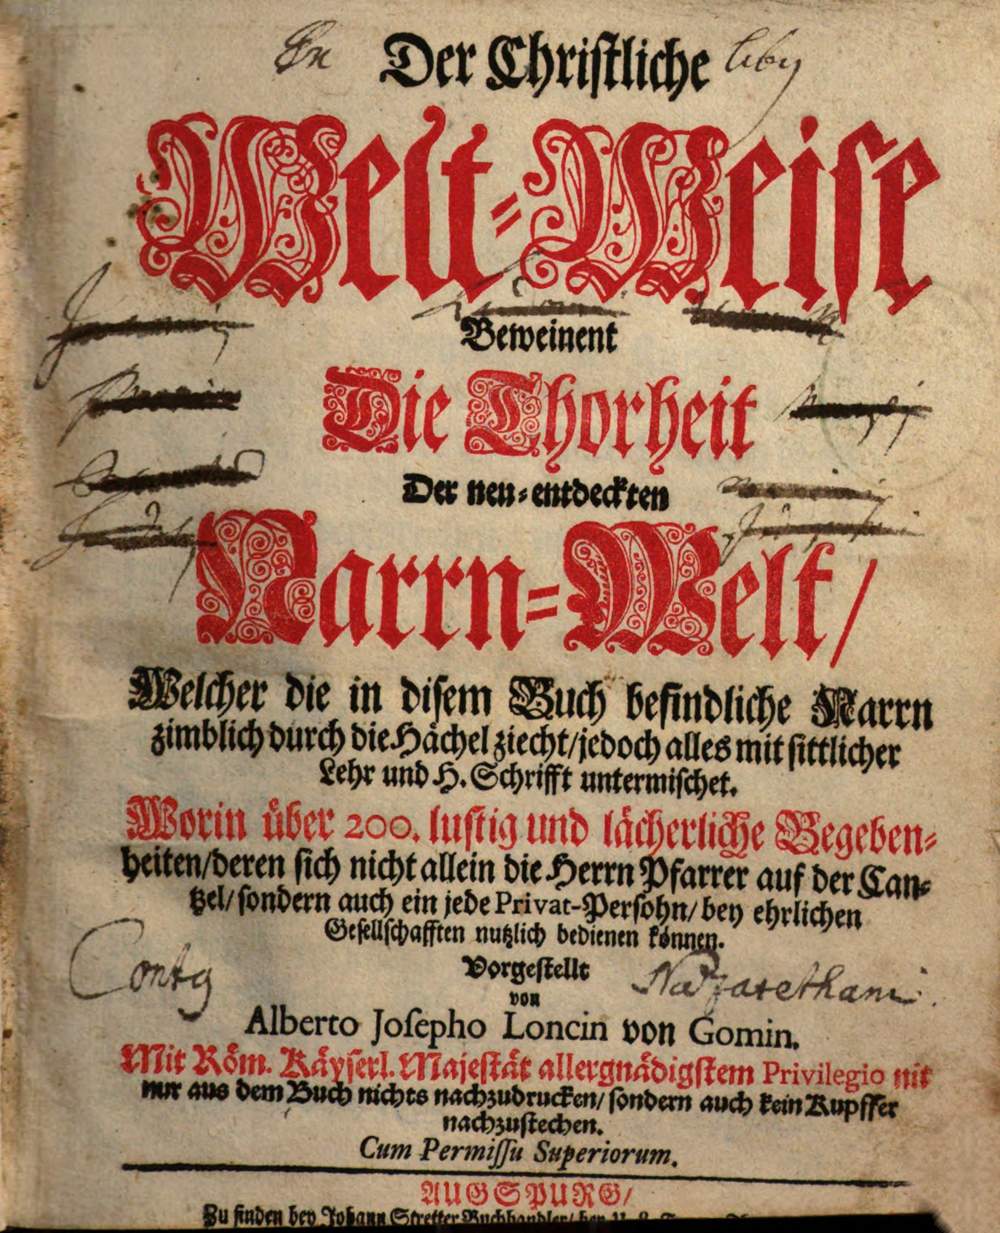 Ex Der Christliche liby
Welt-Weise
Beweinent
Die Thorheit
Der neu-entdeckten
Narrn-Welt/
Welcher die in disem Buch befindliche Narrn
zimblich durch die Hächel ziecht/jedoch alles mit sittlicher
Lehr und H. Schrifft untermischet.
Worin über 200. lustig und lächerliche Begeben-
heiten/deren sich nicht allein die Herrn Pfarrer auf der Can-
tzel/ sondern auch ein jede Privat-Persohn/ bey ehrlichen
Gesellschafften nutzlich bedienen können.
Vorgestellt
von
Conty Nazarethani.
Alberto Josepho Loncin von Gomin.
Mit Röm. Käyserl. Majestät allergnädigstem Privilegio nit
nur aus dem Buch nichts nachzudrucken/ sondern auch kein Kupffer
nachzustechen.
Cum Permissu Superiorum.
AUGSPURG/
Zu finden bey Johann Stretter Buchhandler/